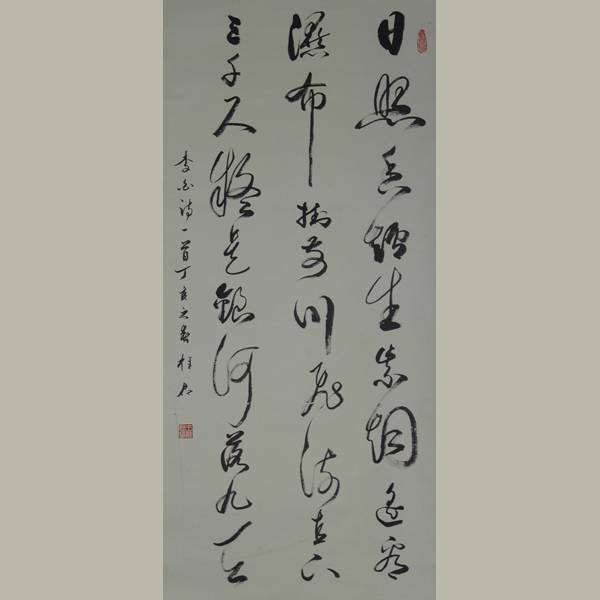 日照香爐生紫烟遙看
瀑布掛前川飛流直下
三千尺疑是銀河落九天
李白詩一首丁亥之春桂